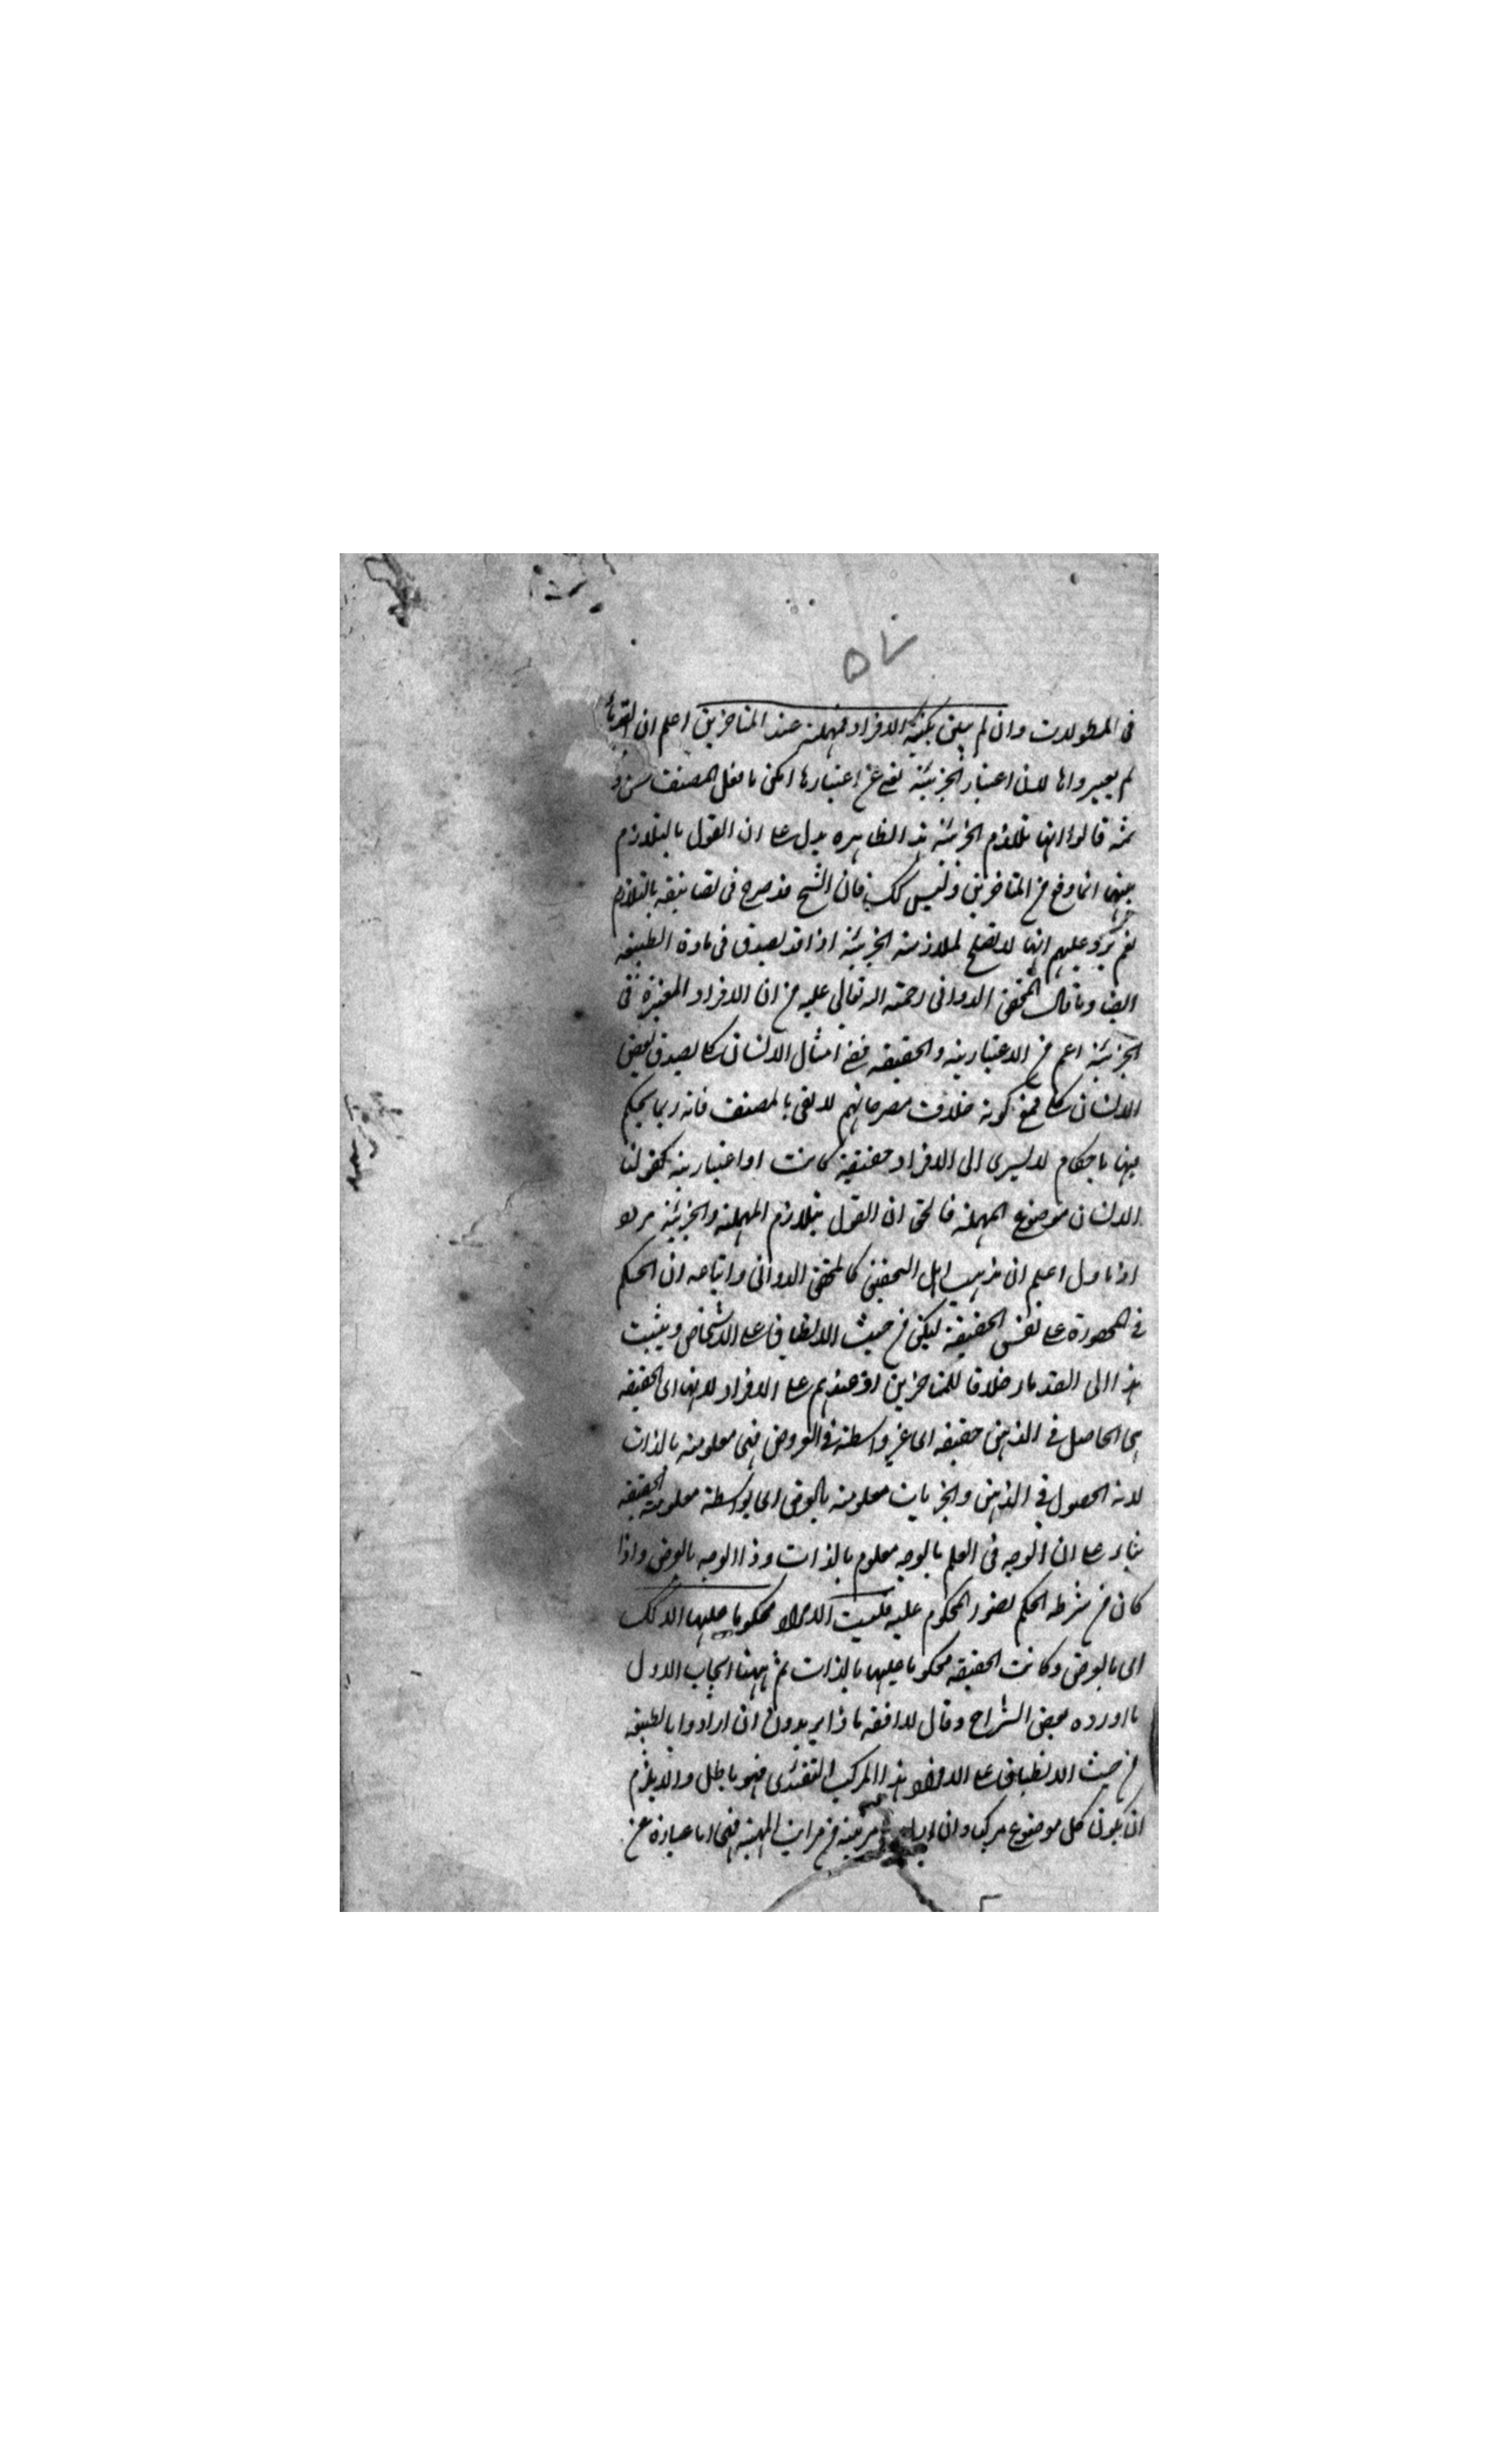 ٥٧
فى المطولات وان لم يبين كمية الافراد فمهملة عند المتاخرين اعلم ان القدماء
لم يعبروا لان اعتبار الجزئية عن اعتبارها لكن ما فعل المصنف
ثمه قالوا انها تلازم الجزئية هذا الظاهره يدل على ان القول بالتلازم
بينهما انما وقع من المتاخرين وليس كك فان الشيخ قد صرح فى تصانيفه بالتلازم
نعم يرد عليهم انها لا تصلح لملازمة الجزئية اذ قد تصدق فى مادة الطبيعة
ايضا وما قال المحقق الدوانى رحمة الله تعالى عليه من ان الافراد المعتبرة فى
الجزئية اعم من الاعتبارية والحقيقه ففى امثال الانسان كلى يصدق بعض
الانسان كلى فمع كونه خلاف مصرحاتهم لا يفى بالمصنف فانه ربما يحكم
بها باحكام لا يسرى الى الافراد حقيقية كانت او اعتبارية كقولنا
الانسان موضوع المهملة فالحق ان القول بتلازم المهملة والجزئية مردو
اوما ول اعلم ان مذهب اهل التحقيق كالمحقق الدوانى واتباعه ان الحكم
فى المحصورة على نفس الحقيقة ليكن من حيث الانطباق على الاشخاص وينسب
هذا الى القدماء خلافا للمتاخرين اذ عندهم على الافراد لانها اى الحقيقه
هى الحاصل فى الذهن حقيقه اى غير واسطة فى العروض فهى معلومة بالذات
لانه الحصول فى الذهن والجزئيات معلومة بالعرض اى بواسطة معلومية الحقيقه
بناء على ان الوجه فى العلم بالوجه معلوم بالذات وذا الوجه بالعرض واذا
كان من شرط الحكم تصور المحكوم عليه فليست الافراد محكوما عليها الا كك
اى بالعرض وكانت الحقيقه محكوما عليها بالذات ثم ههنا ابحاث الاول
ما اورده بعض الشراح وقال لا افقه ماذا يريدون ان ارادوا بالطبيعه
من حيث الانطباق على الافراد هذا المركب التقييدى فهو باطل والا يلزم
ان يكون كل موضوع مركبا وان مرتبة من مراتب المهية فهى اما عبارة عن